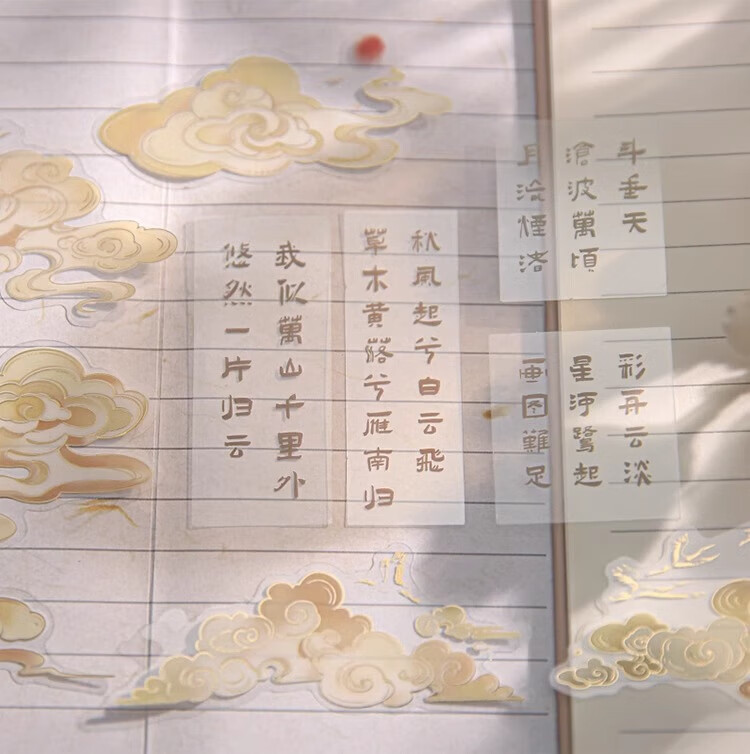 斗垂天
滄波萬頃
月流煙渚
彩舟云淡
星河鷺起
画图難足
秋風起兮白云飛
草木黄落兮雁南归
我似萬山千里外
悠然一片归云